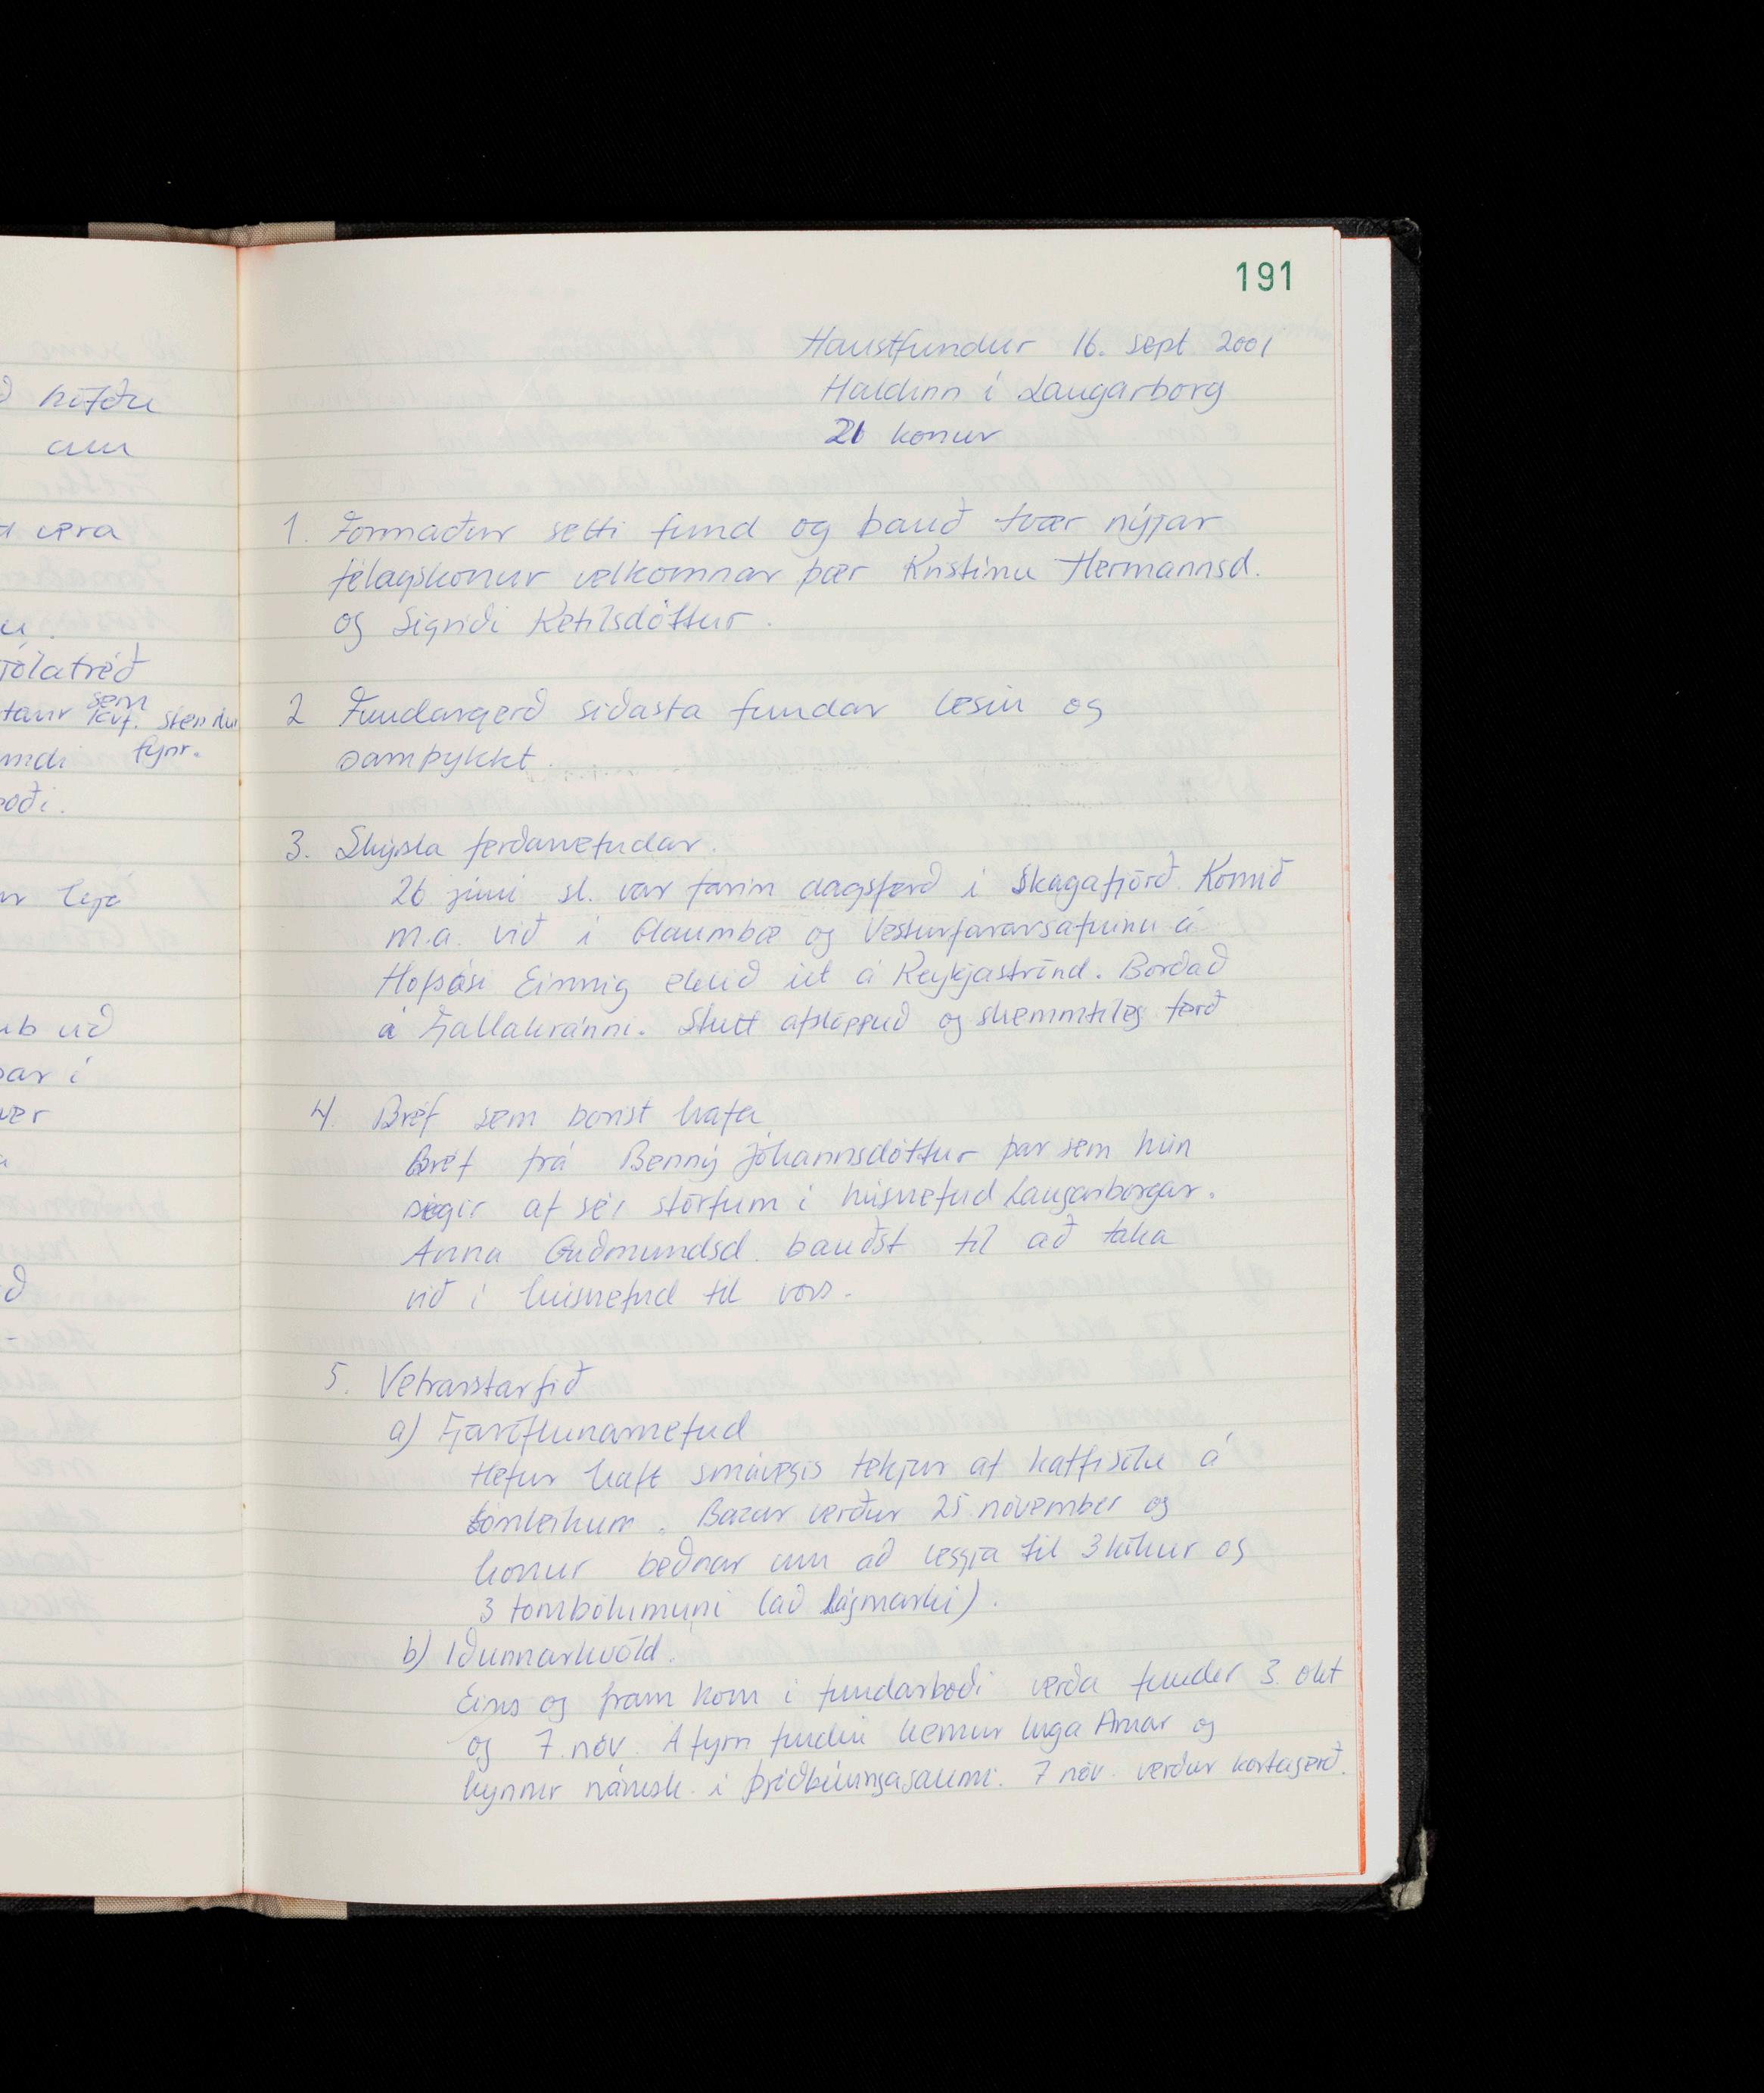 ð hitðu
um
vera
u.
jólatréð
sem
tanr kvf. stendur
fyrir.
mdi
oði.
ur leyé
ub við
þar í
ver
ð
191
Haustfundur 16. sept 2001
Haldinn í Laugarborg
21 konur
1. Formaður setti fund og bauð tvær nýjar
félagskonur velkomnar þær Kristínu Hermannsd.
og Sigríði Ketilsdóttur.
2 Fundargerð síðasta fundar lesin og
samþykkt.
3. Skýrsla ferðanefndar.
26 júní sl. var farin dagsferð í Skagafjörð. Komið
m.a. við í Glaumbæ og Vesturfararsafninu á
Hofsósi Einnig ekið út á Reykjaströnd. Borðað
á Fjallakránni. Stutt afslöppuð og skemmtileg ferð
4. Bréf sem borist hafa
Bréf frá Benný Jóhannsdóttur þar sem hún
segir af sér störfum í húsnefnd Laugarborgar.
Anna Guðmundsd. bauðst til að taka
við í húsnefnd til vors.
5. Vetrarstarfið
a) Fjáröflunarnefnd
Hefur haft smávegis tekjur af kaffisölu á
tónleikum. Bazar verður 25 nóvember og
konur beðnar um að leggja til 3 kökur og
3 tombólumuni (að lágmarki).
b) Iðunnarkvöld.
Eins og fram kom í fundarboði verða fundir 3. okt
og 7. nóv. Á fyrri fundin kemur Inga Arnar og
kynnir námsk. í þjóðbúningasaumi. 7 nóv. verður kortagerð.